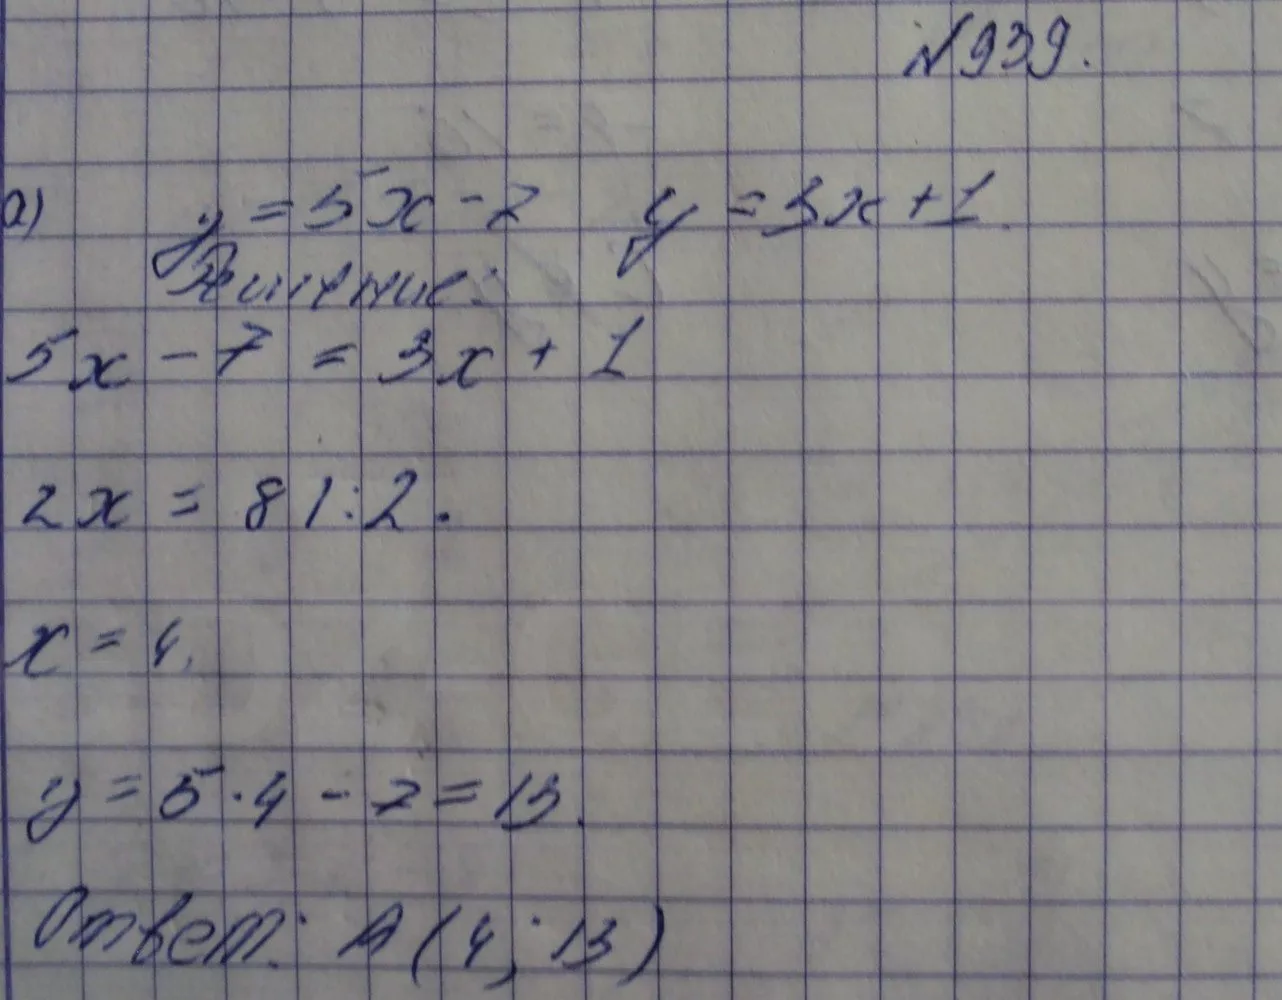 №939.
а) y = 5x - 7 y = 3x + 1.
Решение:
5x - 7 = 3x + 1
2x = 8 | : 2.
x = 4.
y = 5 · 4 - 7 = 13.
Ответ: A (4; 13)